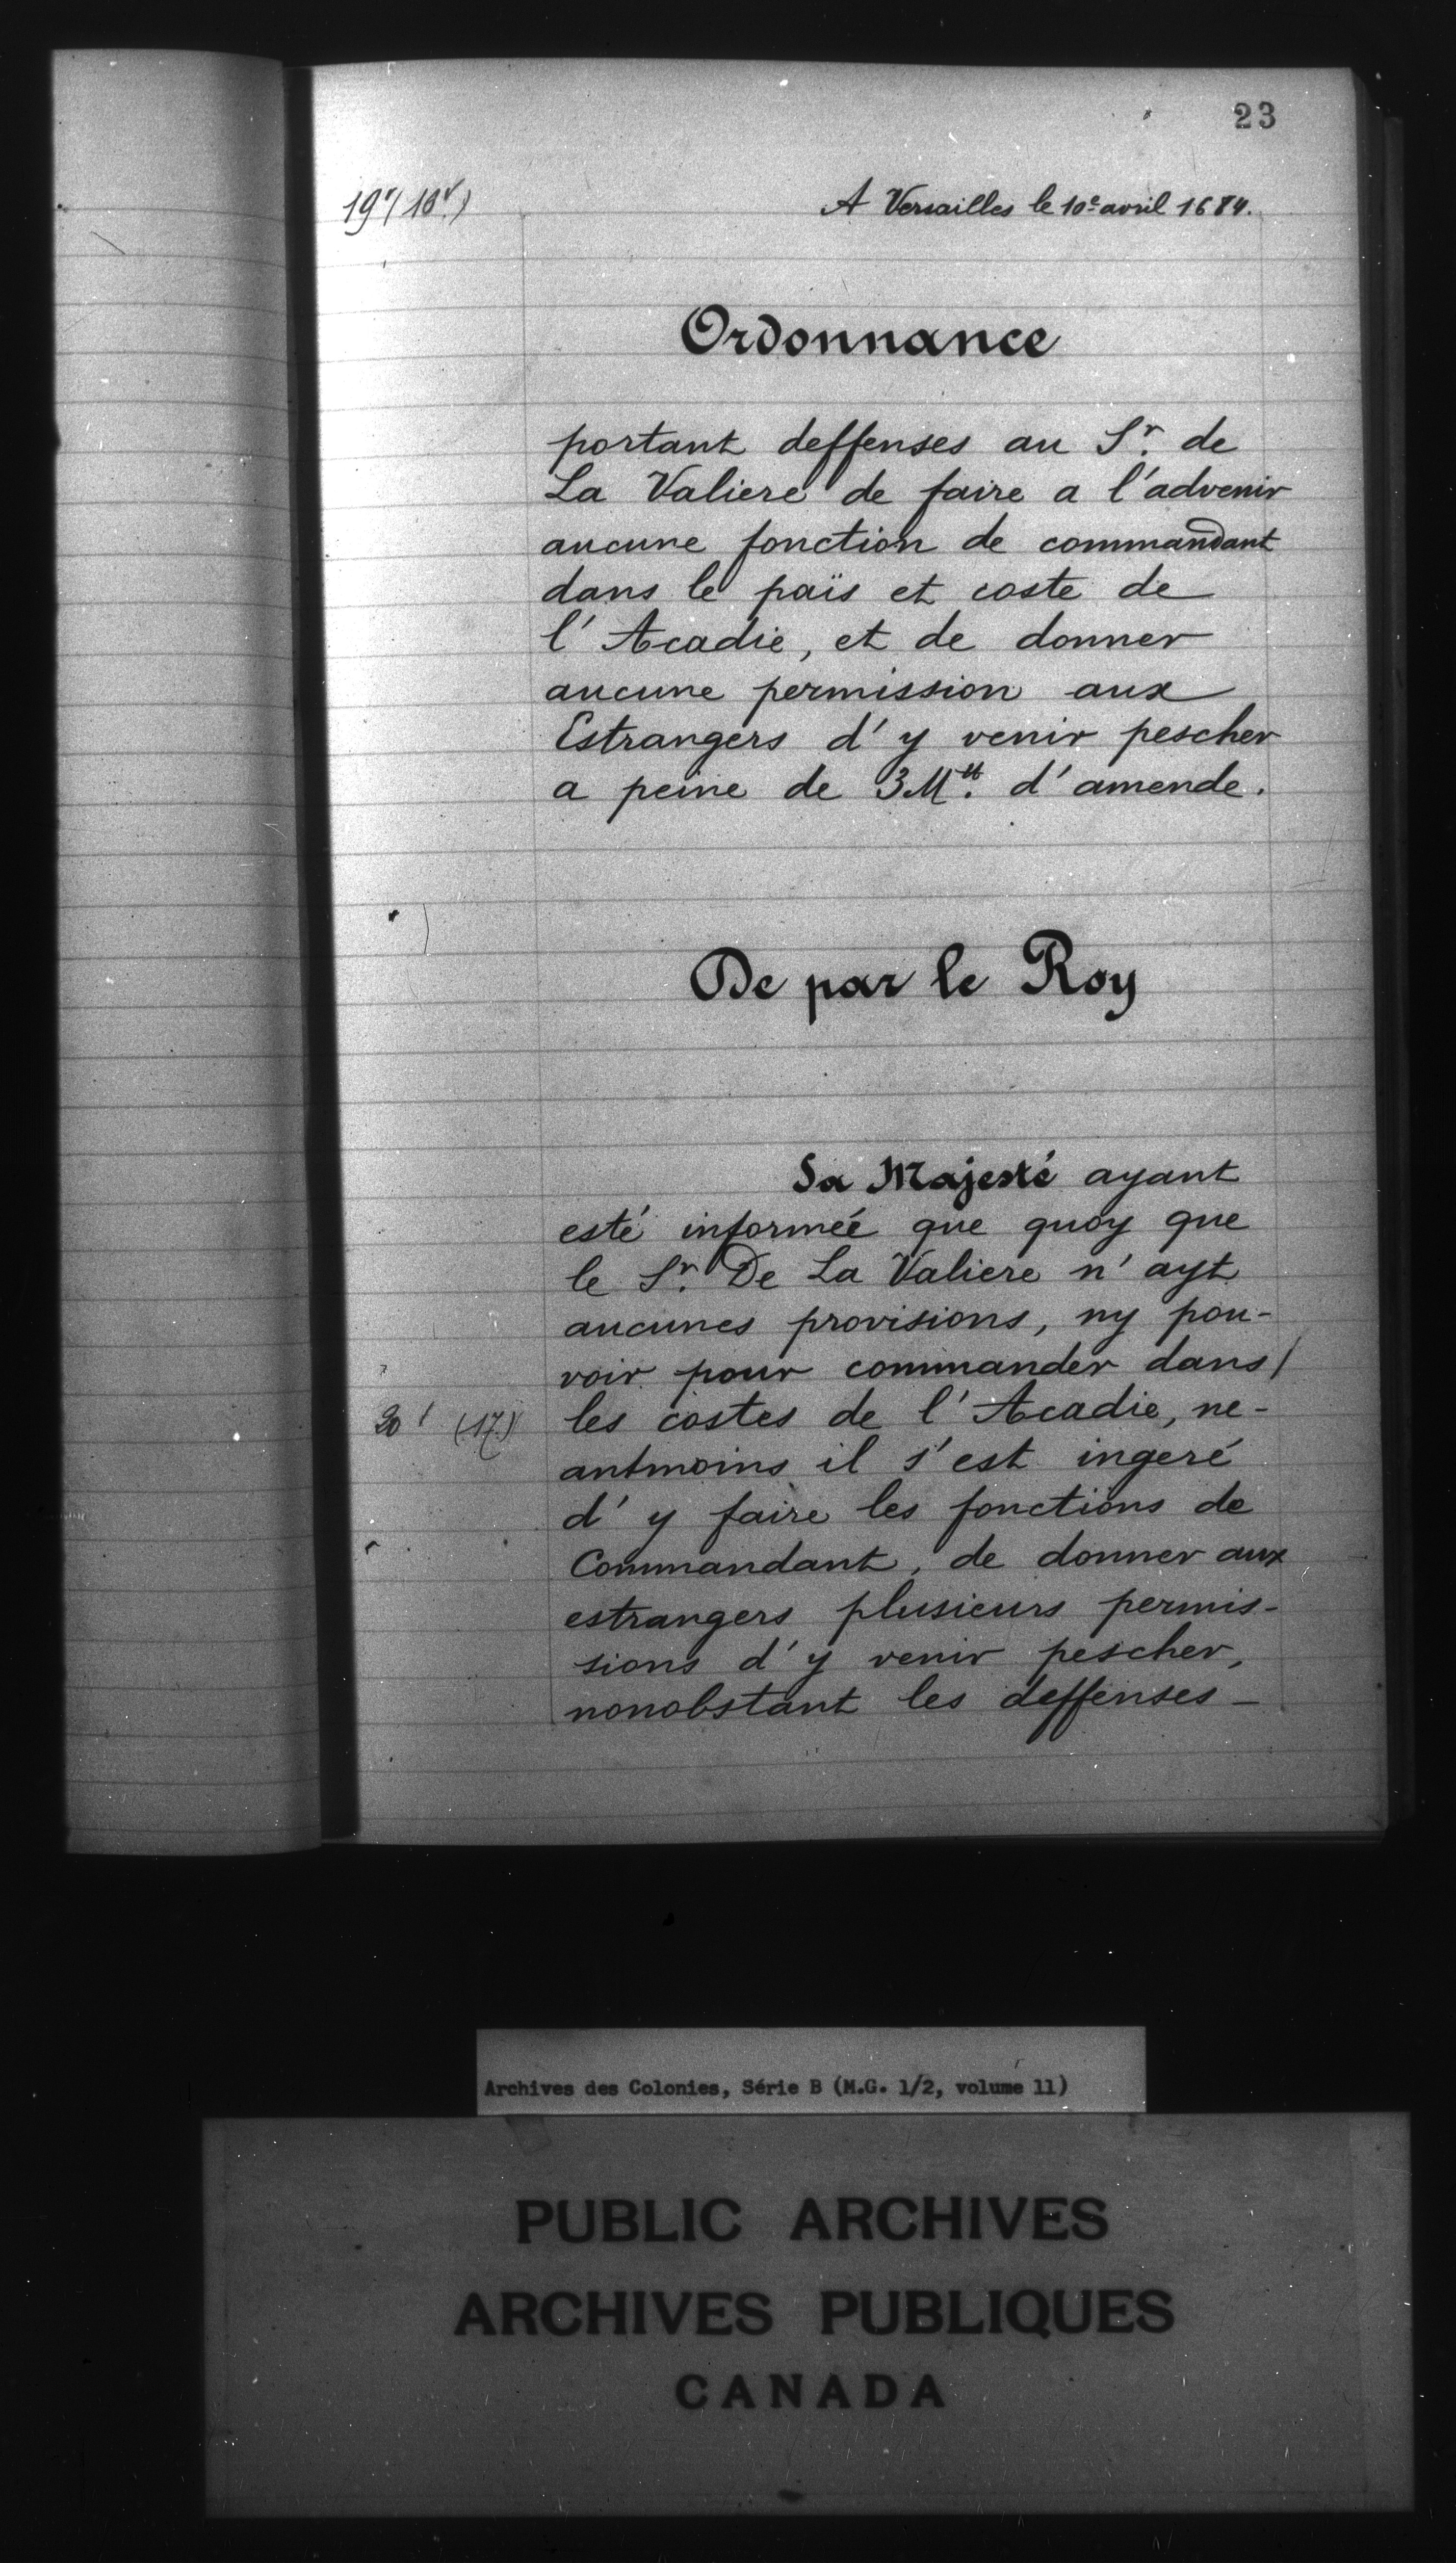 23
A Versailles le 10e avril 1684.
Ordonnance
portant deffenses au Sr. de
La Valiere de faire a l'advenir
aucune fonction de commandant
dans le païs et coste de
l'Acadie, et de donner
aucune permission aux
Estrangers d'y venir pescher
a peine de 3 M tt. d'amende.
De par le Roy
Sa Majesté ayant
esté informée que quoy que
le Sr. De La Valiere n'ayt
aucunes provisions, ny pou-
voir pour commander dans /
20 (17.) les costes de l'Acadie, ne-
antmoins il s'est ingeré
d'y faire les fonctions de
Commandant, de donner aux
estrangers plusieurs permis-
sions d'y venir pescher,
nonobstant les deffenses -
Archives des Colonies, Série B (M.G. 1/2, volume 11)
PUBLIC ARCHIVES
ARCHIVES PUBLIQUES
CANADA